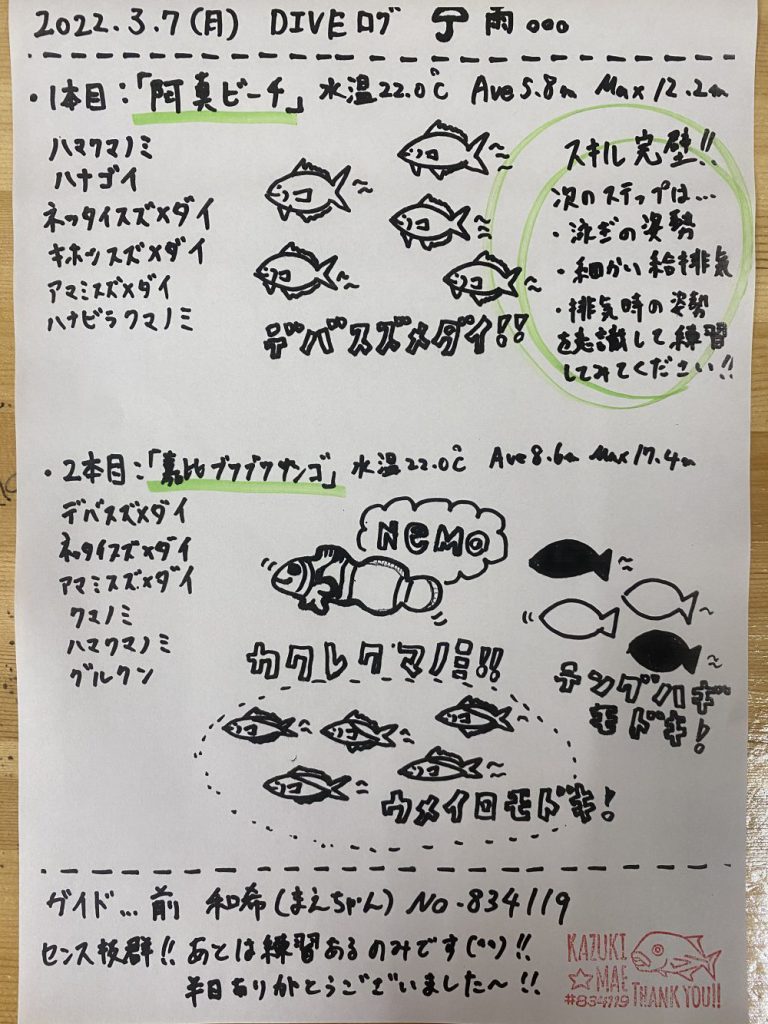 2022.3.7(月) DIVEログ 雨...
・1本目：「阿真ビーチ」 水温22.0℃ Ave5.8m Max12.2m
ハマクマノミ
ハナゴイ
ネッタイスズメダイ
キホシスズメダイ
アマミスズメダイ
ハナビラクマノミ
デバスズメダイ!!
スキル完璧!!
次のステップは...
・泳ぎの姿勢
・細かい給排気
・排気時の姿勢
を意識して練習
してみてください!!
・2本目：「嘉比ブツブツサンゴ」 水温22.0℃ Ave8.6m Max17.4m
デバスズメダイ
ネッタイスズメダイ
アマミスズメダイ
クマノミ
ハマクマノミ
グルクン
NEMO
カクレクマノミ!!
テングハギ
モドキ!
ウメイロモドキ!
ガイド...前 和希(まえちゃん) No.834119
センス抜群!! あとは練習あるのみです(^^)!!
半日ありがとうございました〜!!
KAZUKI
☆MAE
#834119 THANK YOU!!